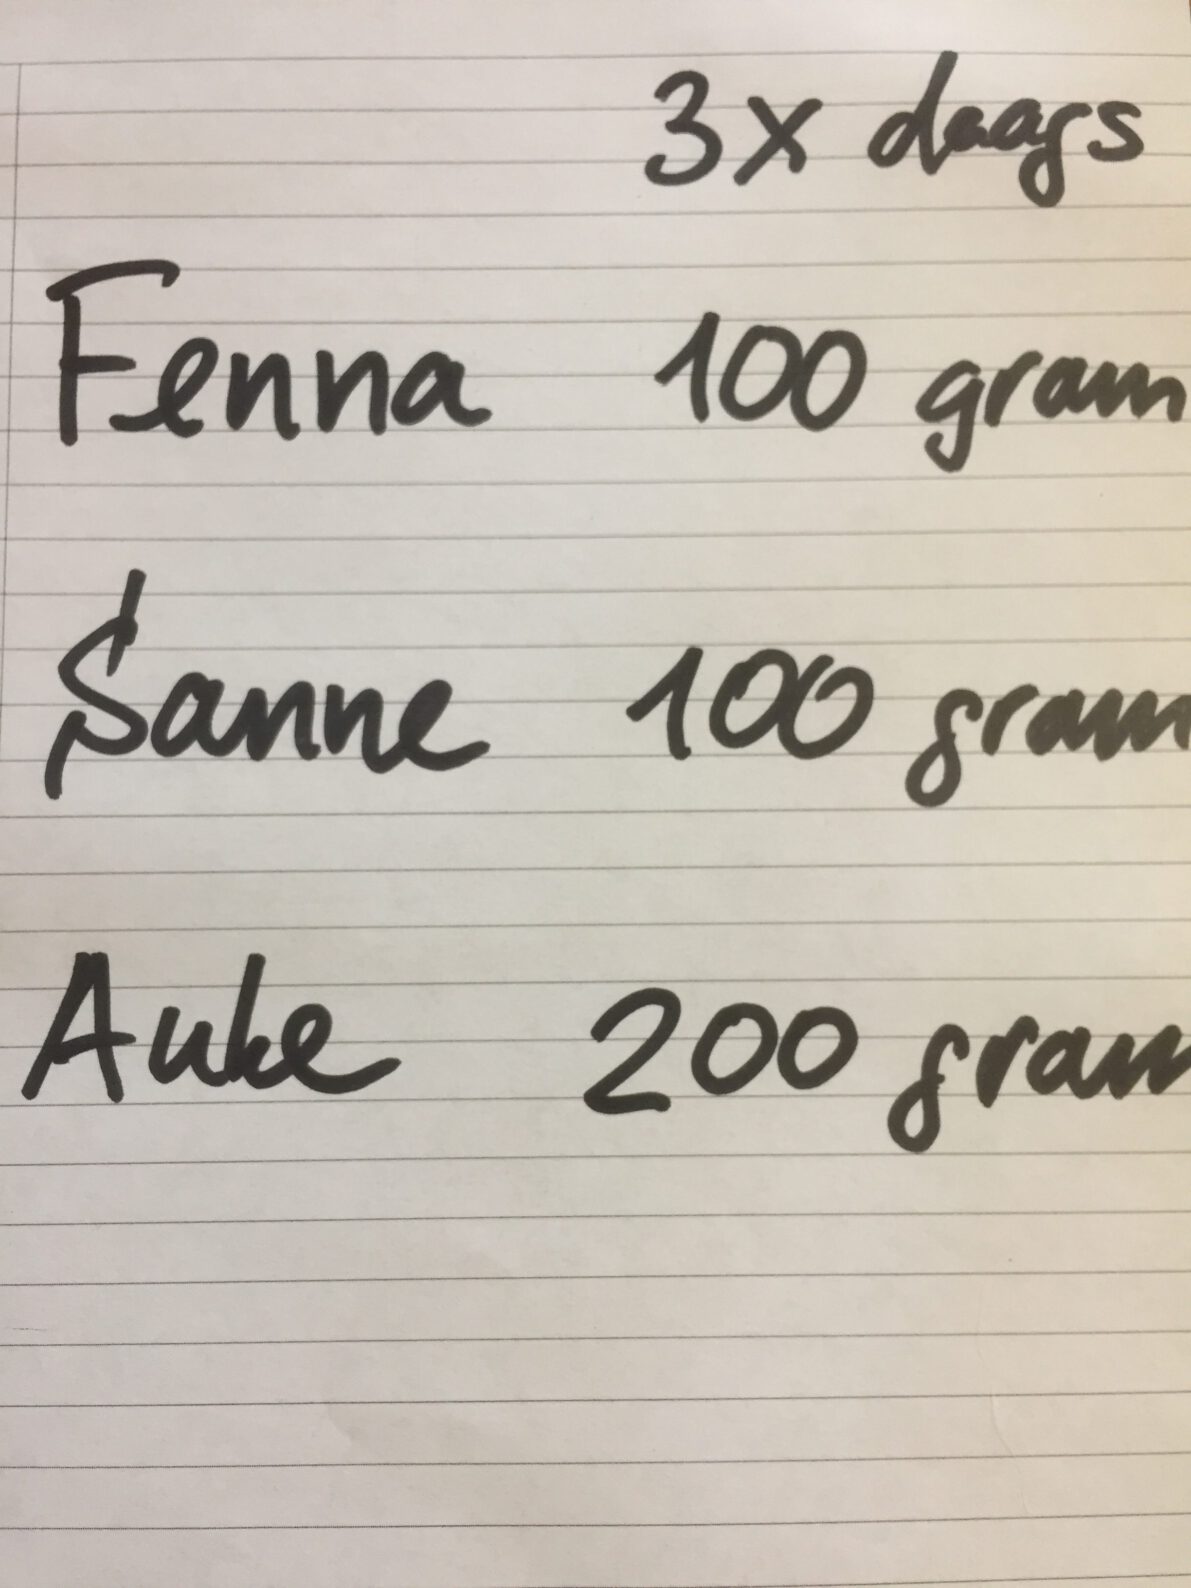 3x daags
Fenna 100 gram
Sanne 100 gram
Auke 200 gram